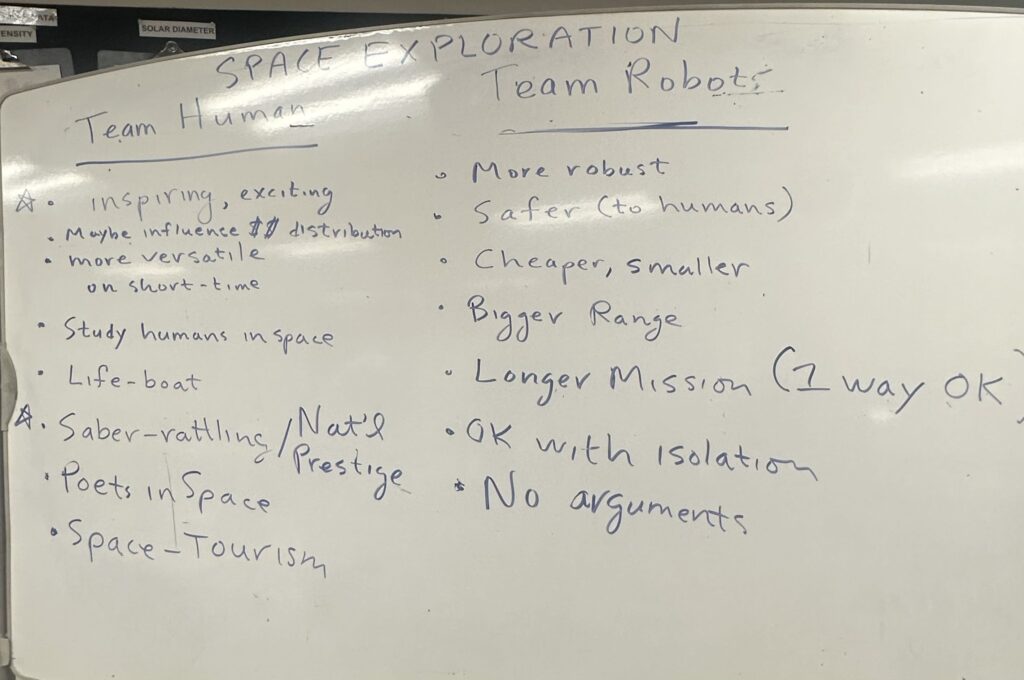 ATA
ENSITY
SOLAR DIAMETER
SPACE EXPLORATION
Team Human
☆ • inspiring, exciting
• Maybe influence $$ distribution
• more versatile
on short-time
• Study humans in space
• Life-boat
☆ • Saber-rattling / Nat'l
Prestige
• Poets in Space
• Space-Tourism
Team Robots
• More robust
• Safer (to humans)
• Cheaper, smaller
• Bigger Range
• Longer Mission (1 way OK)
• OK with isolation
• No arguments